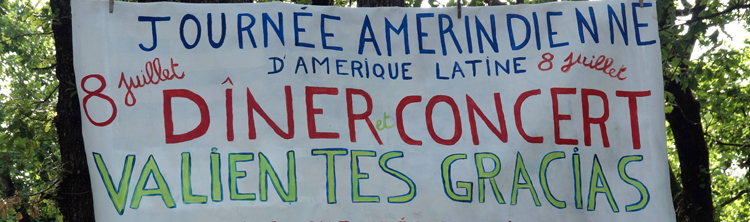 JOURNÉE AMERINDIENNE
D'AMERIQUE LATINE 8 juillet
8 juillet
DÎNER et CONCERT
VALIENTES GRACIAS